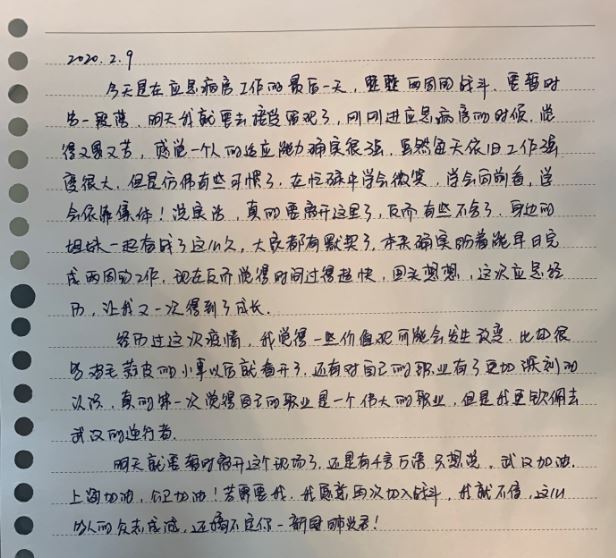 2020.2.9
今天是在应急病房工作的最后一天，整整两周的战斗，要暂时
告一段落，明天我就要去接受医观了，刚刚进应急病房的时候，觉
得又累又苦，感觉一个人的适应能力确实很强，虽然每天依旧工作强
度很大，但是仿佛有些习惯了，在忙碌中学会微笑，学会向前看，学
会依靠集体！说实话，真的要离开这里了，反而有些不舍了，身边的
姐妹一起奋战了这么久，大家都有默契了，本来确实盼着能早日完
成两周的工作，现在反而觉得时间过得超快，回头想想，这次应急经
历，让我又一次得到了成长。
经历过这次疫情，我觉得一些价值观可能会发生改变，比如很
多鸡毛蒜皮的小事以后就看开了，还有对自己的职业有了更加深刻的
认识，真的第一次觉得自己的职业是一个伟大的职业，但是我更钦佩去
武汉的逆行者。
明天就要暂时离开这个现场了，还是有千言万语只想说，武汉加油，
上海加油，公卫加油！若需要我，我愿意再次加入战斗，我就不信，这么
多人的众志成城，还搞不定你－新冠肺炎君！